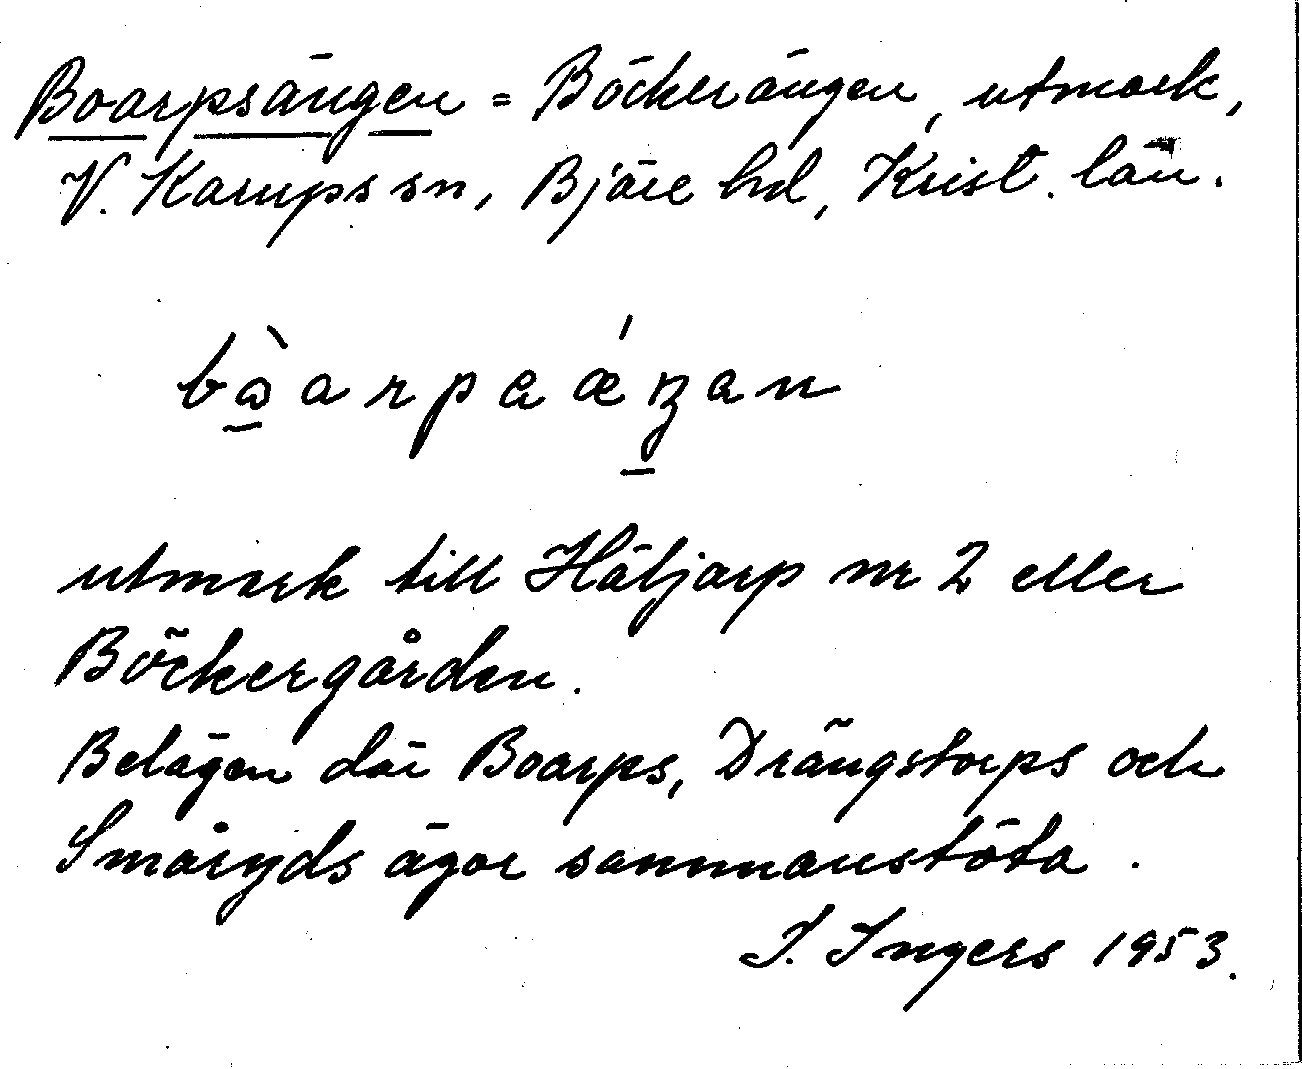 Boarpsängen = Böckerängen, utmark,
V. Karups sn, Bjäre hd, Krist. län.
utmark till Häljarp nr 2 eller
Böckergården.
Belägen där Boarps, Drängstorps och
Småryds ägor sammanstöta.
I. Ingers 1953.